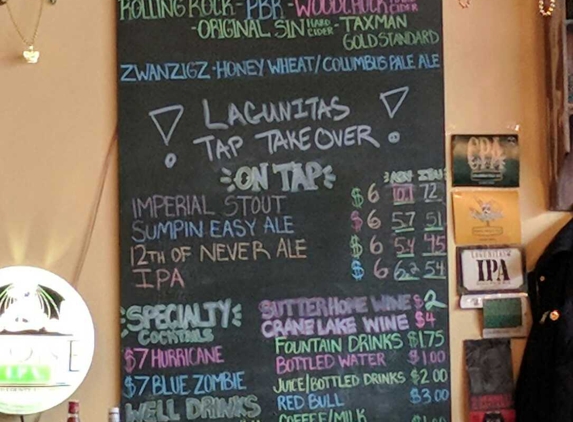 ROLLING ROCK - PBR - WOODCHUCK HARD CIDER
- ORIGINAL SIN HARD CIDER - TAXMAN
GOLD STANDARD
ZWANZIGZ - HONEY WHEAT / COLUMBUS PALE ALE
! LAGUNITAS !
TAP TAKEOVER
ON TAP
ABV IBU
IMPERIAL STOUT $6 10.1 72
SUMPIN EASY ALE $6 5.7 51
12TH OF NEVER ALE $6 5.4 45
IPA $6 6.2 54
SPECIALTY
COCKTAILS
$7 HURRICANE
$7 BLUE ZOMBIE
WELL DRINKS
SUTTER HOME WINE $2
CRANE LAKE WINE $4
FOUNTAIN DRINKS $1.75
BOTTLED WATER $1.00
JUICE | BOTTLED DRINKS $2.00
RED BULL $3.00
COFFEE/MILK
CPA
IPA